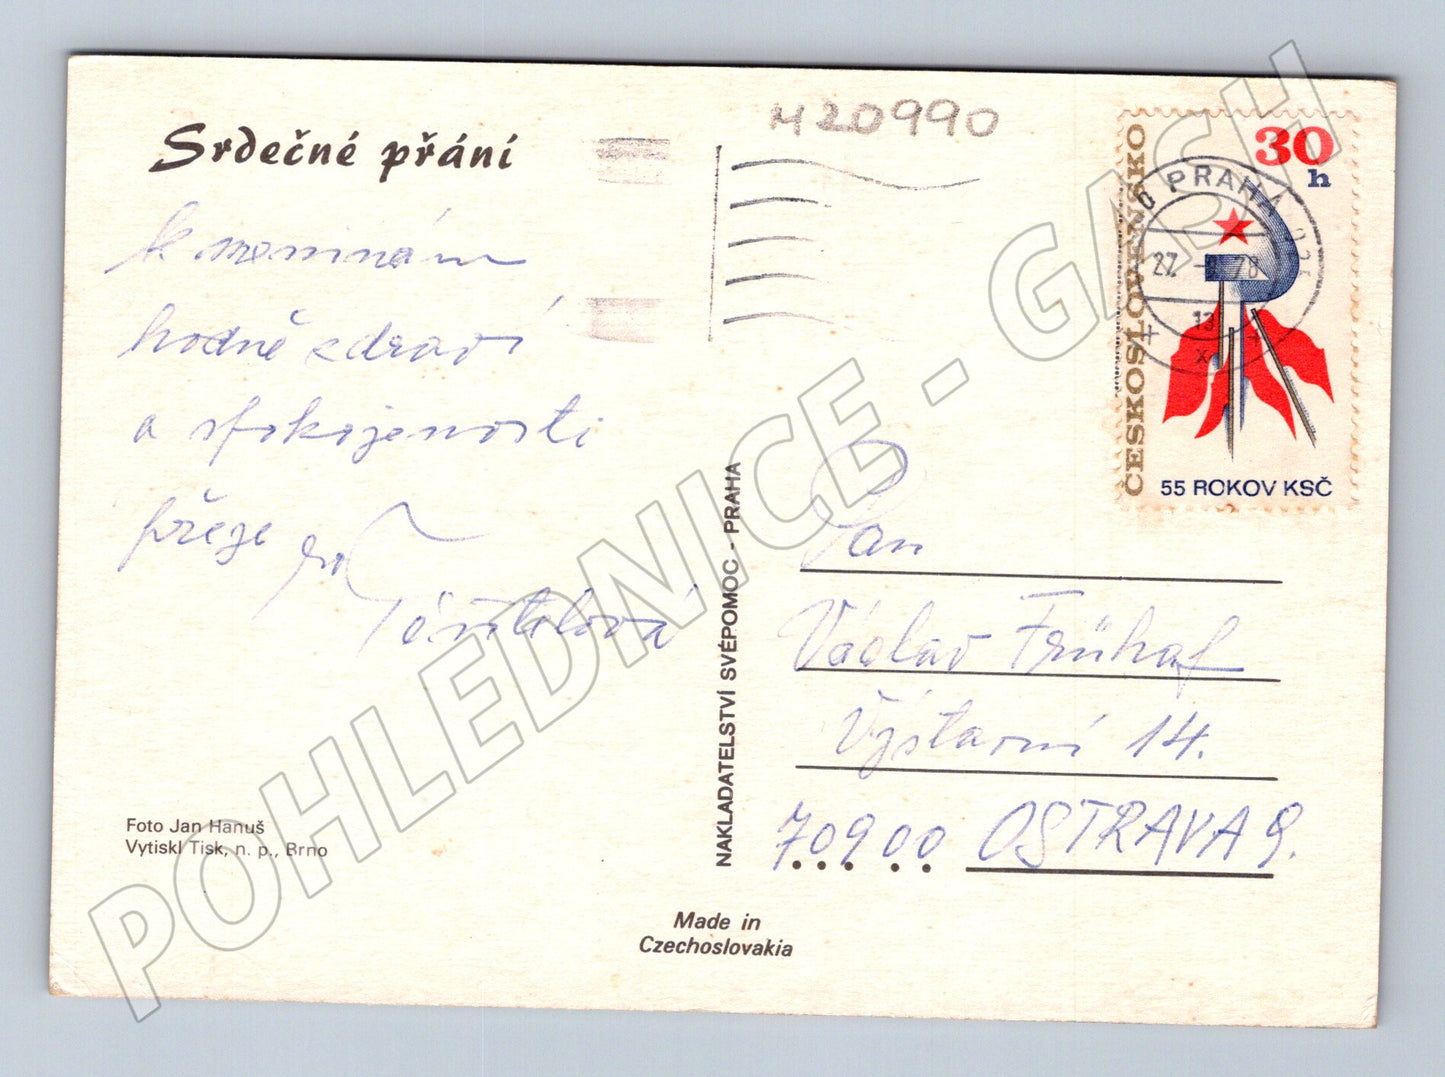 Srdečné přání
k
hodně zdraví
a spokojenosti
přeje
Foto Jan Hanuš
Vytiskl Tisk, n. p., Brno
Made in
Czechoslovakia
NAKLADATELSTVÍ SVÉPOMOC - PRAHA
M20990
ČESKOSLOVENSKO
30
h
55 ROKOV KSČ
PRAHA
27
78
13
x
Pan
Václav Frühaf
Výstavní 14.
70900 OSTRAVA 9.
POHLEDNICE - GASH